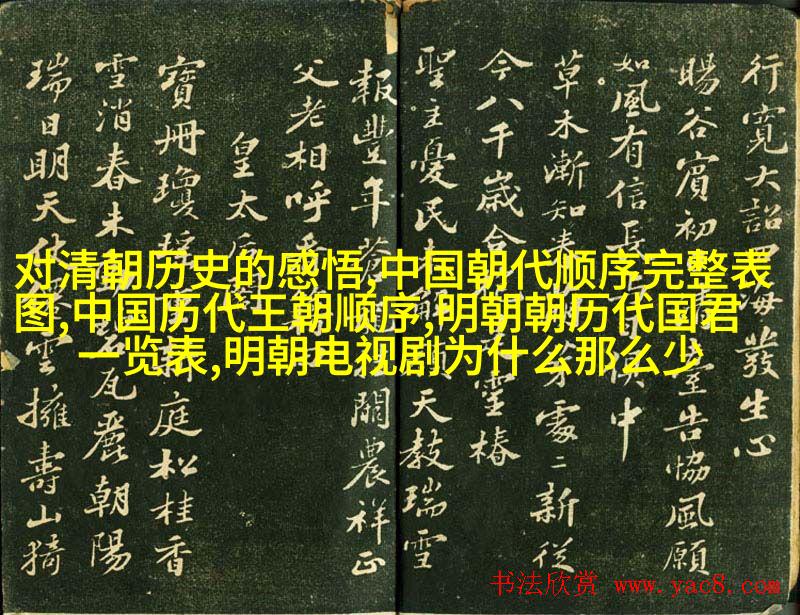 行寬大詔四海發生心
暘谷賓初室告協風願
如風有信長候中
草木漸知春芽處〻新從
今八千歲合靈椿
聖主憂民天教瑞雪
報豐年蒼闢農祥正
父老相呼
皇太后
寶冊瓊庭松桂香
雪消春未瓦麗朝陽
瑞日明天仗雲擁壽山猗
对清朝历史的感悟,中国朝代顺序完整表
图,中国历代王朝顺序,明朝朝历代国君
一览表,明朝电视剧为什么那么少
书法欣赏 www.yac8.com